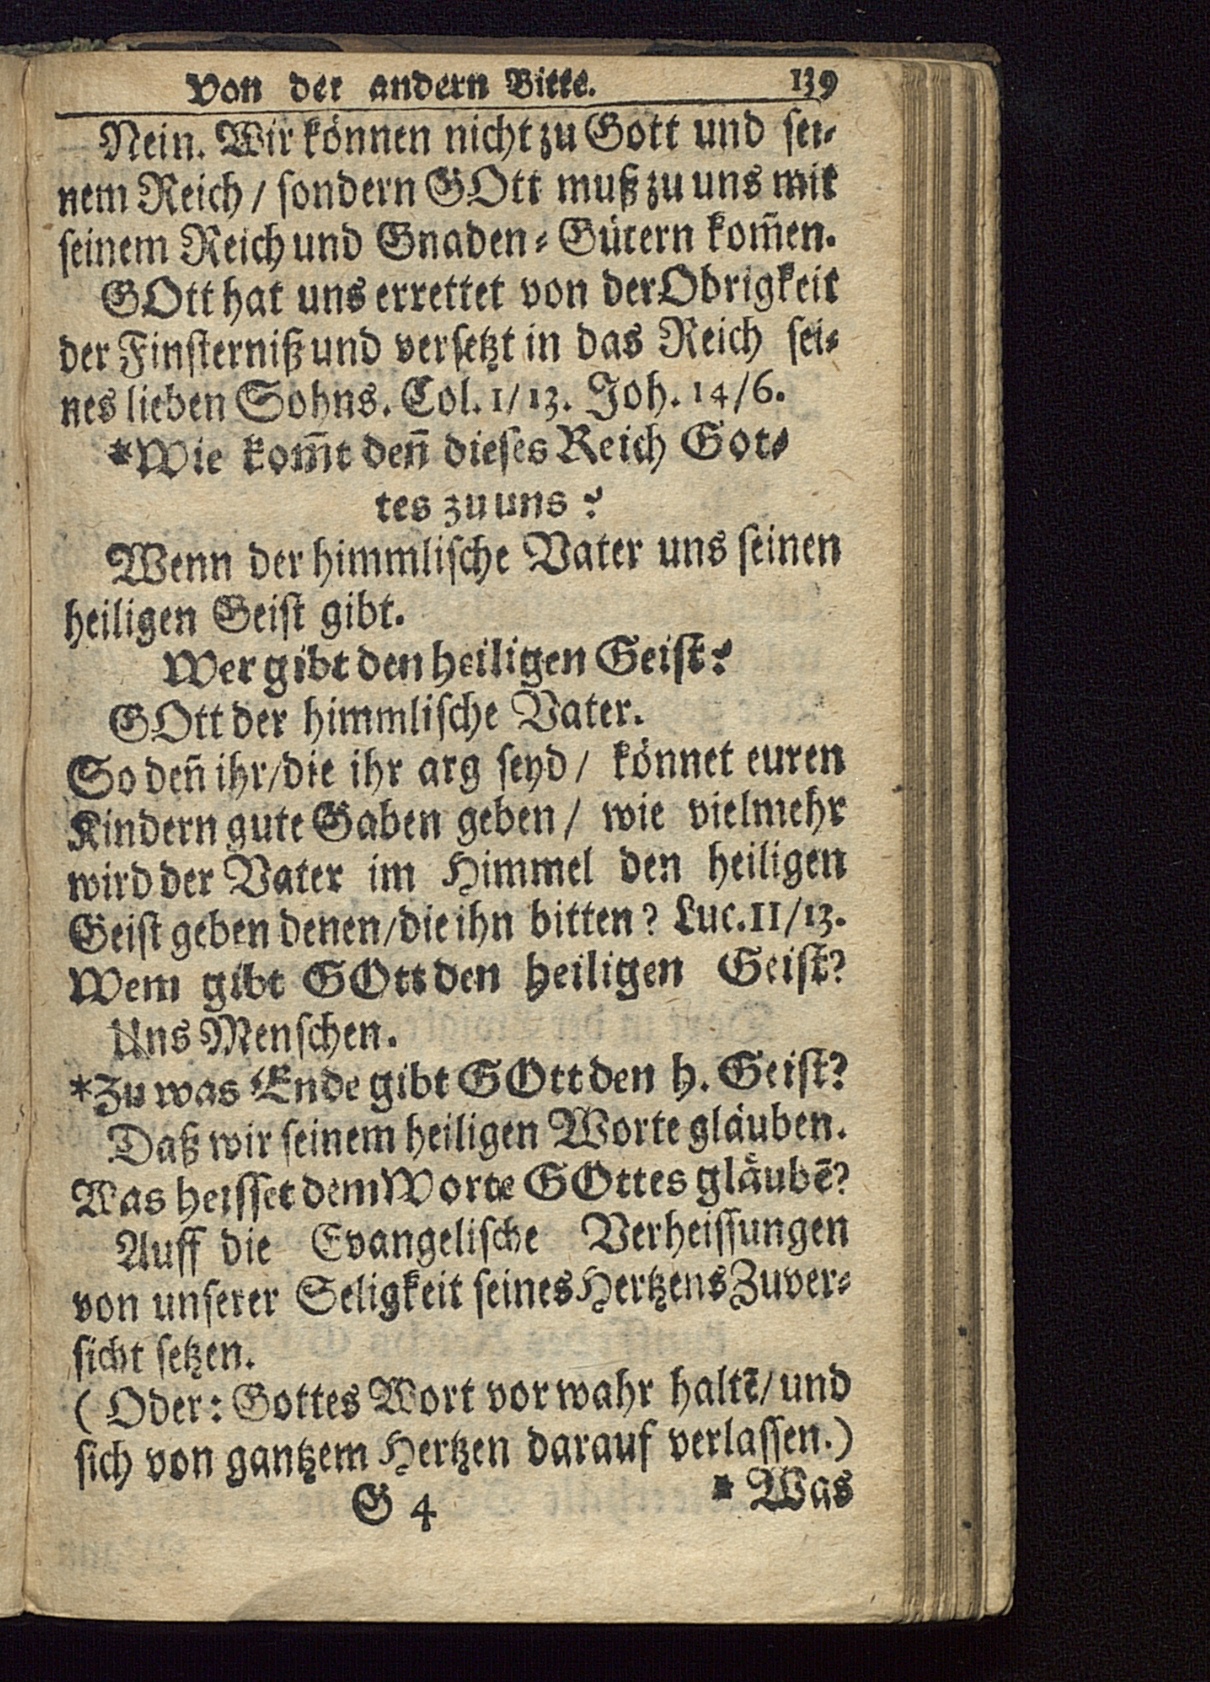 Von der andern Bitte. 139
Nein. Wir können nicht zu Gott und sei-
nem Reich / sondern GOtt muß zu uns mit
seinem Reich und Gnaden-Gütern kom̃en.
GOtt hat uns errettet von der Obrigkeit
der Finsterniß und versetzt in das Reich sei-
nes lieben Sohns. Col. 1/13. Joh. 14/6.
*Wie kom̃t deñ dieses Reich Got-
tes zu uns?
Wenn der himmlische Vater uns seinen
heiligen Geist gibt.
Wer gibt den heiligen Geist?
GOtt der himmlische Vater.
So deñ ihr/die ihr arg seyd / könnet euren
Kindern gute Gaben geben / wie vielmehr
wird der Vater im Himmel den heiligen
Geist geben denen/die ihn bitten? Luc. 11/13.
Wem gibt GOtt den heiligen Geist?
Uns Menschen.
*Zu was Ende gibt GOtt den h. Geist?
Daß wir seinem heiligen Worte gläuben.
Was heisset dem Worte GOttes gläubẽ?
Auff die Evangelische Verheissungen
von unserer Seligkeit seines Hertzens Zuver-
sicht setzen.
(Oder: Gottes Wort vor wahr haltẽ/und
sich von gantzem Hertzen darauf verlassen.)
G 4 * Was